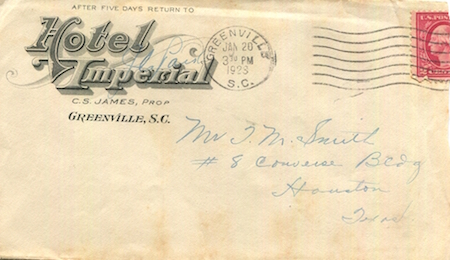 AFTER FIVE DAYS RETURN TO
Hotel
Imperial
C.S. JAMES, PROP
GREENVILLE, S.C.
GREENVILLE
JAN 20
3 PM
1923
S.C.
U.S. POS
Mr T. M. Smith
# 8 Converse Bldg
Houston
Texas